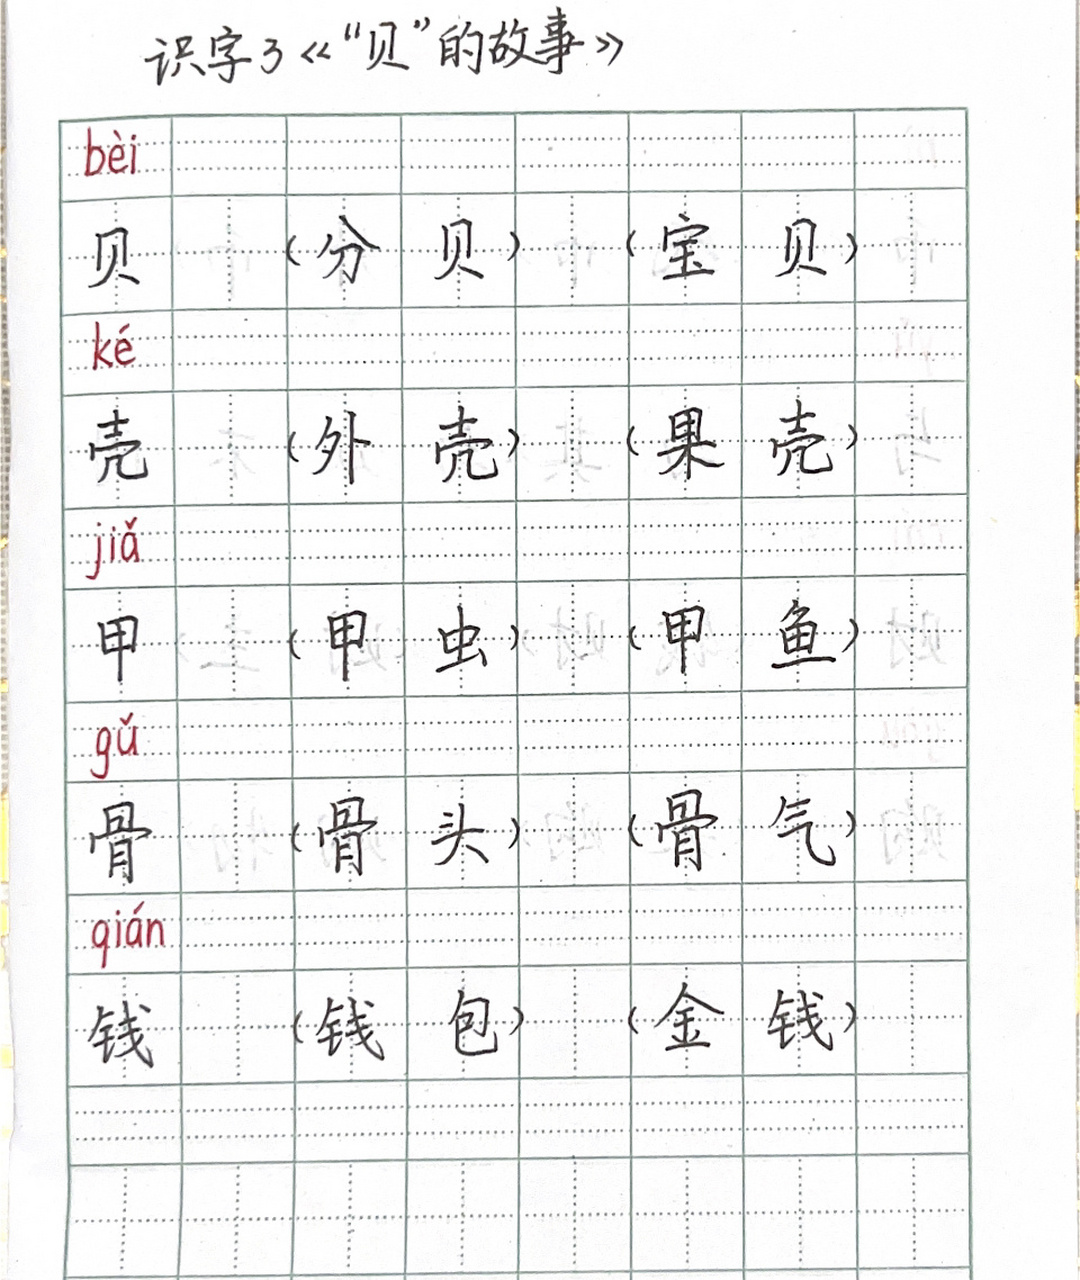 识字3《“贝”的故事》
bèi
贝 (分贝) (宝贝)
ké
壳 (外壳) (果壳)
jiǎ
甲 (甲虫) (甲鱼)
gǔ
骨 (骨头) (骨气)
qián
钱 (钱包) (金钱)